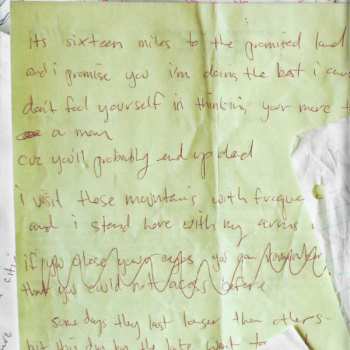 its sixteen miles to the promised land
and i promise you i'm doing the best i can
don't fool yourself in thinking your more t
a man
cuz you'll probably end up dead
i visit these mountains with freque
and i stand here with my arms
if you close your eyes you can
that you could not before
some days they last longer than others
but this day by the lake went to